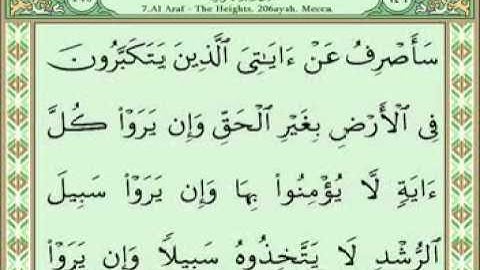 7.Al Araf - The Heights. 206ayah. Mecca.
سَأَصْرِفُ عَنْ ءَايَـٰتِىَ ٱلَّذِينَ يَتَكَبَّرُونَ
فِى ٱلْأَرْضِ بِغَيْرِ ٱلْحَقِّ وَإِن يَرَوْا۟ كُلَّ
ءَايَةٍ لَّا يُؤْمِنُوا۟ بِهَا وَإِن يَرَوْا۟ سَبِيلَ
ٱلرُّشْدِ لَا يَتَّخِذُوهُ سَبِيلًا وَإِن يَرَوْا۟